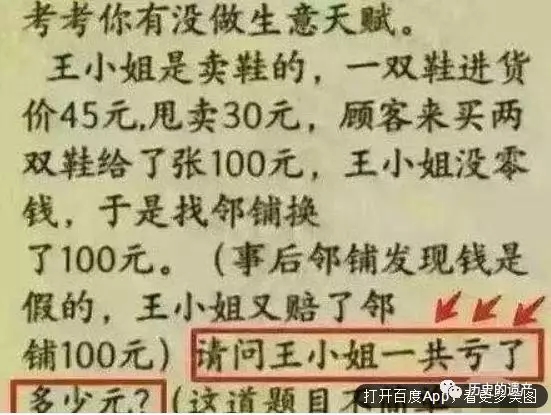 考考你有没做生意天赋。
王小姐是卖鞋的，一双鞋进货
价45元,甩卖30元，顾客来买两
双鞋给了张100元，王小姐没零
钱，于是找邻铺换
了100元。（事后邻铺发现钱是
假的，王小姐又赔了邻
铺100元）请问王小姐一共亏了
多少元？（这道题目不
历史的遗产
打开百度App，看更多美图